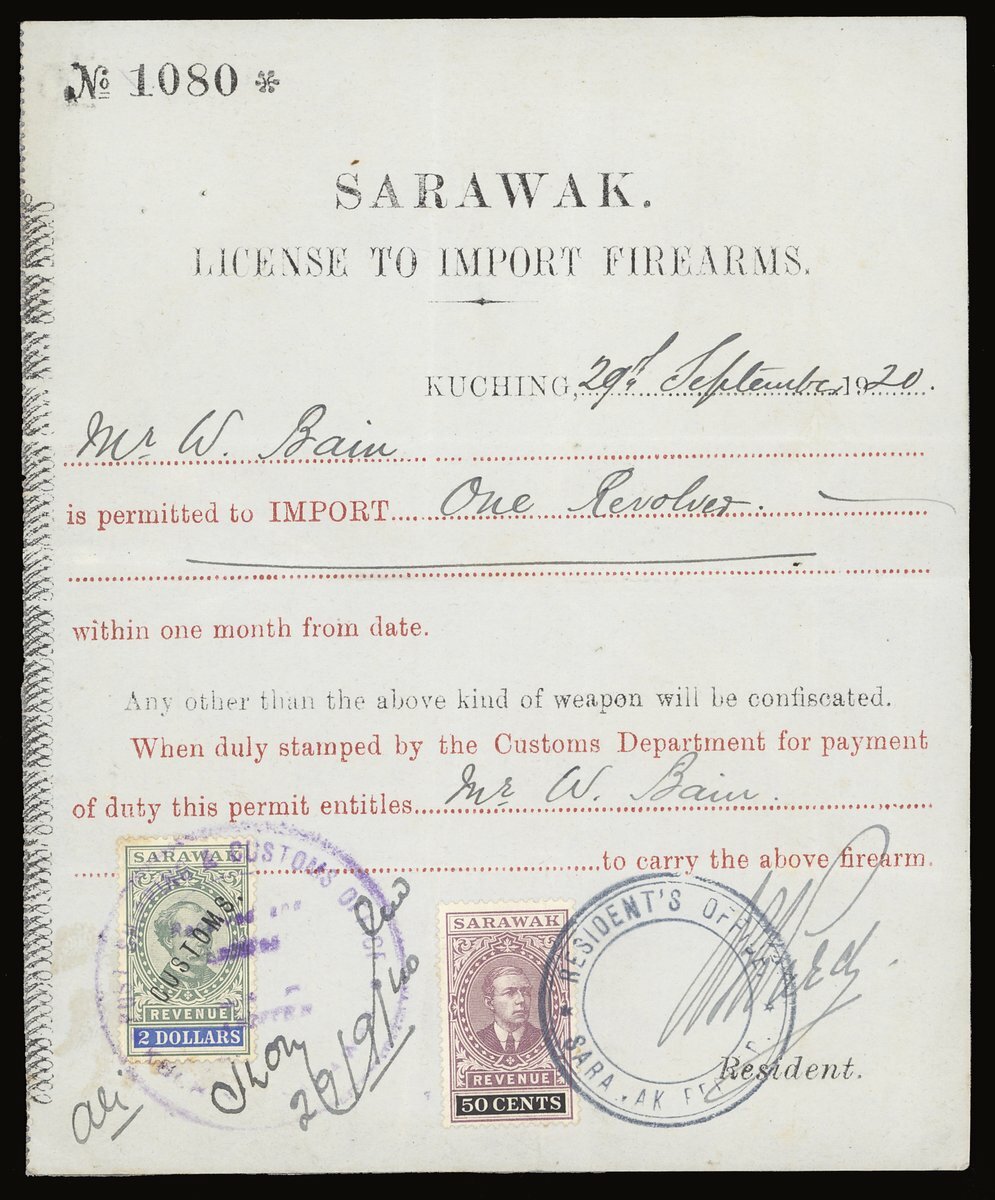 № 1080 *
SARAWAK.
LICENSE TO IMPORT FIREARMS.
KUCHING, 29th September 1920.
Mr W. Bain
is permitted to IMPORT One Revolver.
within one month from date.
Any other than the above kind of weapon will be confiscated.
When duly stamped by the Customs Department for payment
of duty this permit entitles Mr W. Bain.
to carry the above firearm.
SARAWAK
CUSTOMS.
REVENUE
2 DOLLARS
CUSTOMS OF
29/9/20
SARAWAK
REVENUE
50 CENTS
RESIDENT'S OFFICE
Resident.